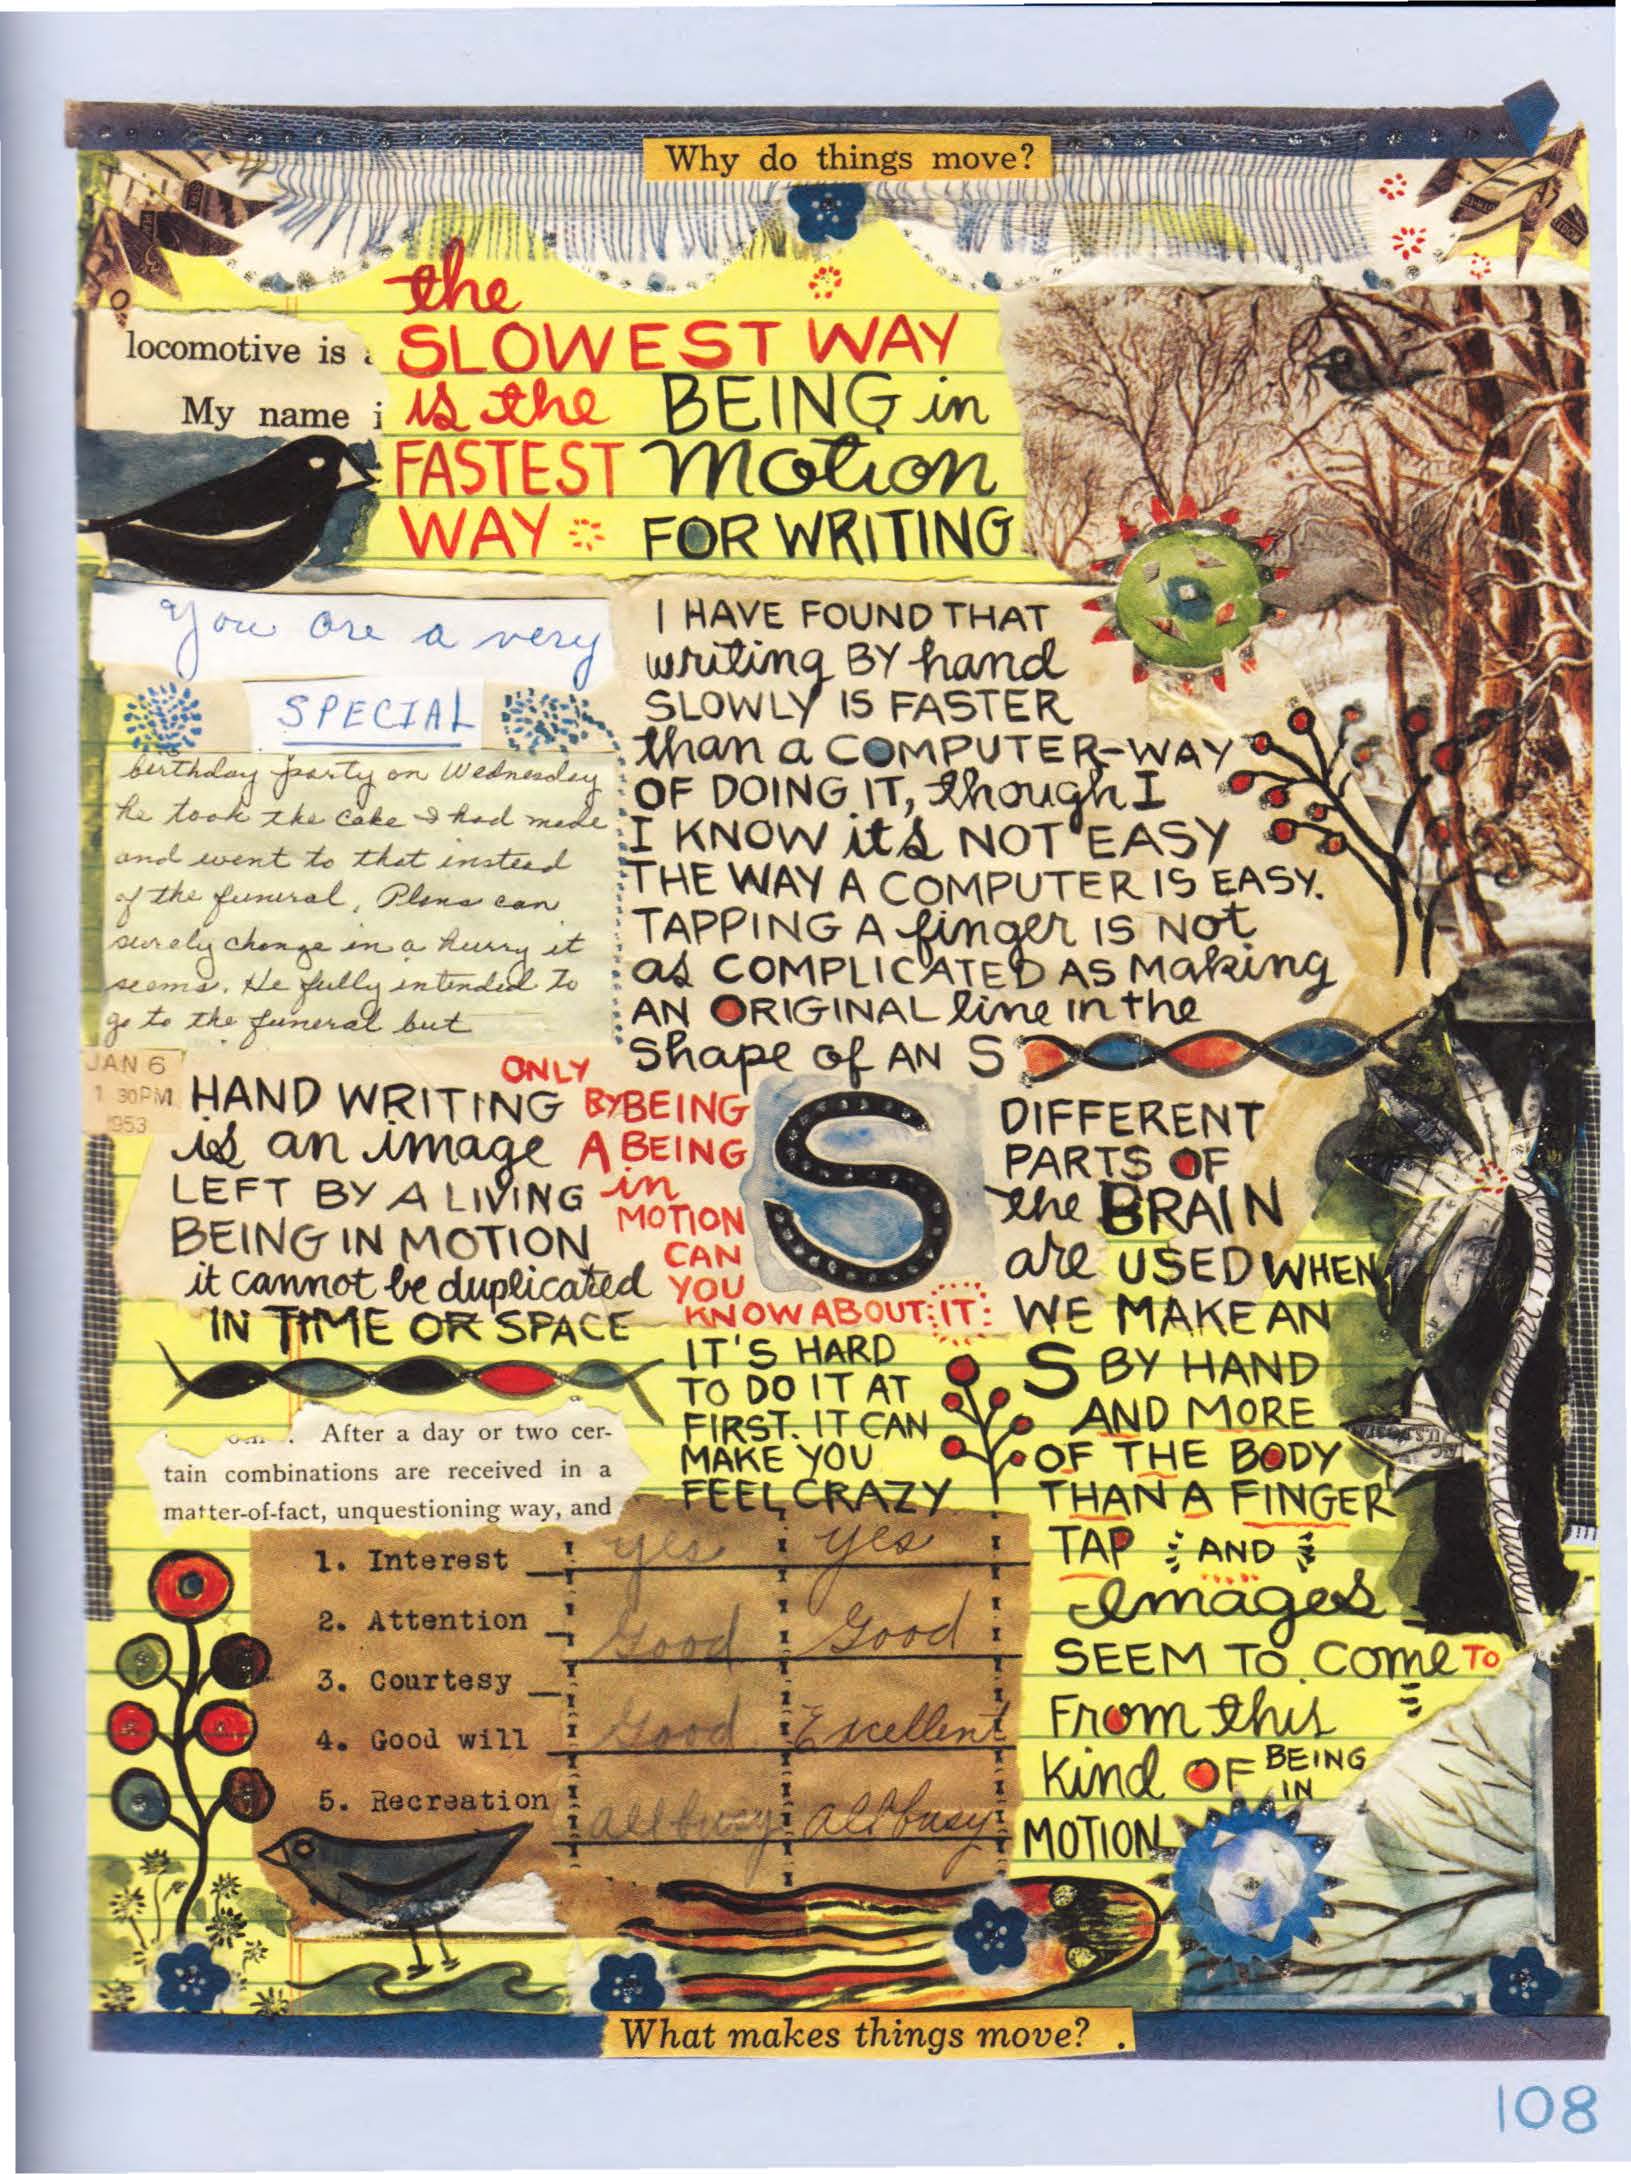 Why do things move?
the
SLOWEST WAY
is the
FASTEST
WAY
BEING in
Motion
FOR WRITING
locomotive is
My name i
You are a very
SPECIAL
birthday party on Wednesday
he took the cake I had made
and went to that instead
of the funeral. Plans can
surely change in a hurry it
seems. He fully intended to
go to the funeral but
I HAVE FOUND THAT
writing BY hand
SLOWLY IS FASTER
than a COMPUTER-WAY
OF DOING IT, though I
I KNOW it's NOT EASY
THE WAY A COMPUTER IS EASY.
TAPPING A finger IS NOT
as COMPLICATED AS Making
AN ORIGINAL line in the
Shape of AN S
JAN 6
1 30PM
1953
HAND WRITING
is an image
LEFT BY A LIVING
BEING IN MOTION
it cannot be duplicated
IN TIME OR SPACE
ONLY
BY BEING
A BEING
in
MOTION
CAN
YOU
KNOW ABOUT IT:
S
IT'S HARD
TO DO IT AT
FIRST. IT CAN
MAKE YOU
FEEL CRAZY
DIFFERENT
PARTS OF
the BRAIN
are USED WHEN
WE MAKE AN
S BY HAND
AND MORE
OF THE BODY
THAN A FINGER
TAP AND
images
SEEM TO COME TO
From this
kind OF BEING
IN
MOTION
After a day or two cer-
tain combinations are received in a
matter-of-fact, unquestioning way, and
1. Interest yes yes
2. Attention Good Good
3. Courtesy
4. Good will Good Excellent
5. Recreation all busy all busy
What makes things move?
108